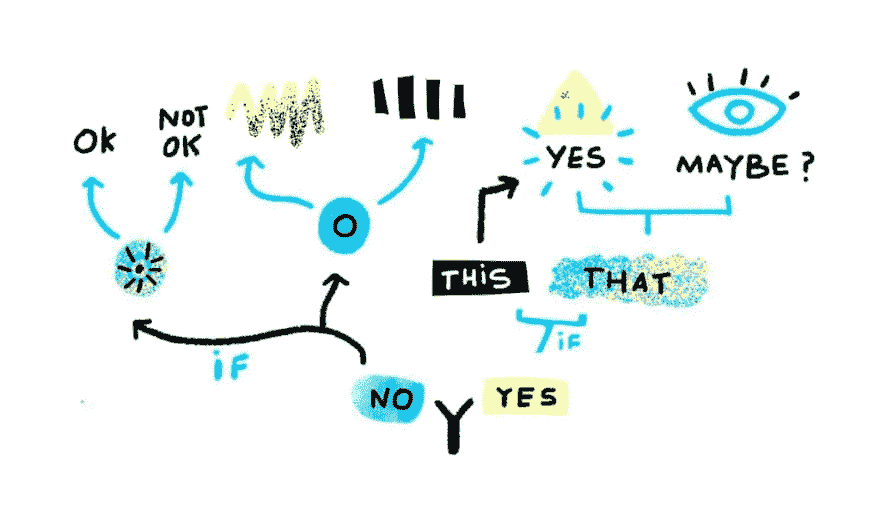 OK
NOT
OK
YES
MAYBE?
O
THiS
THAT
iF
iF
NO
YES
Y